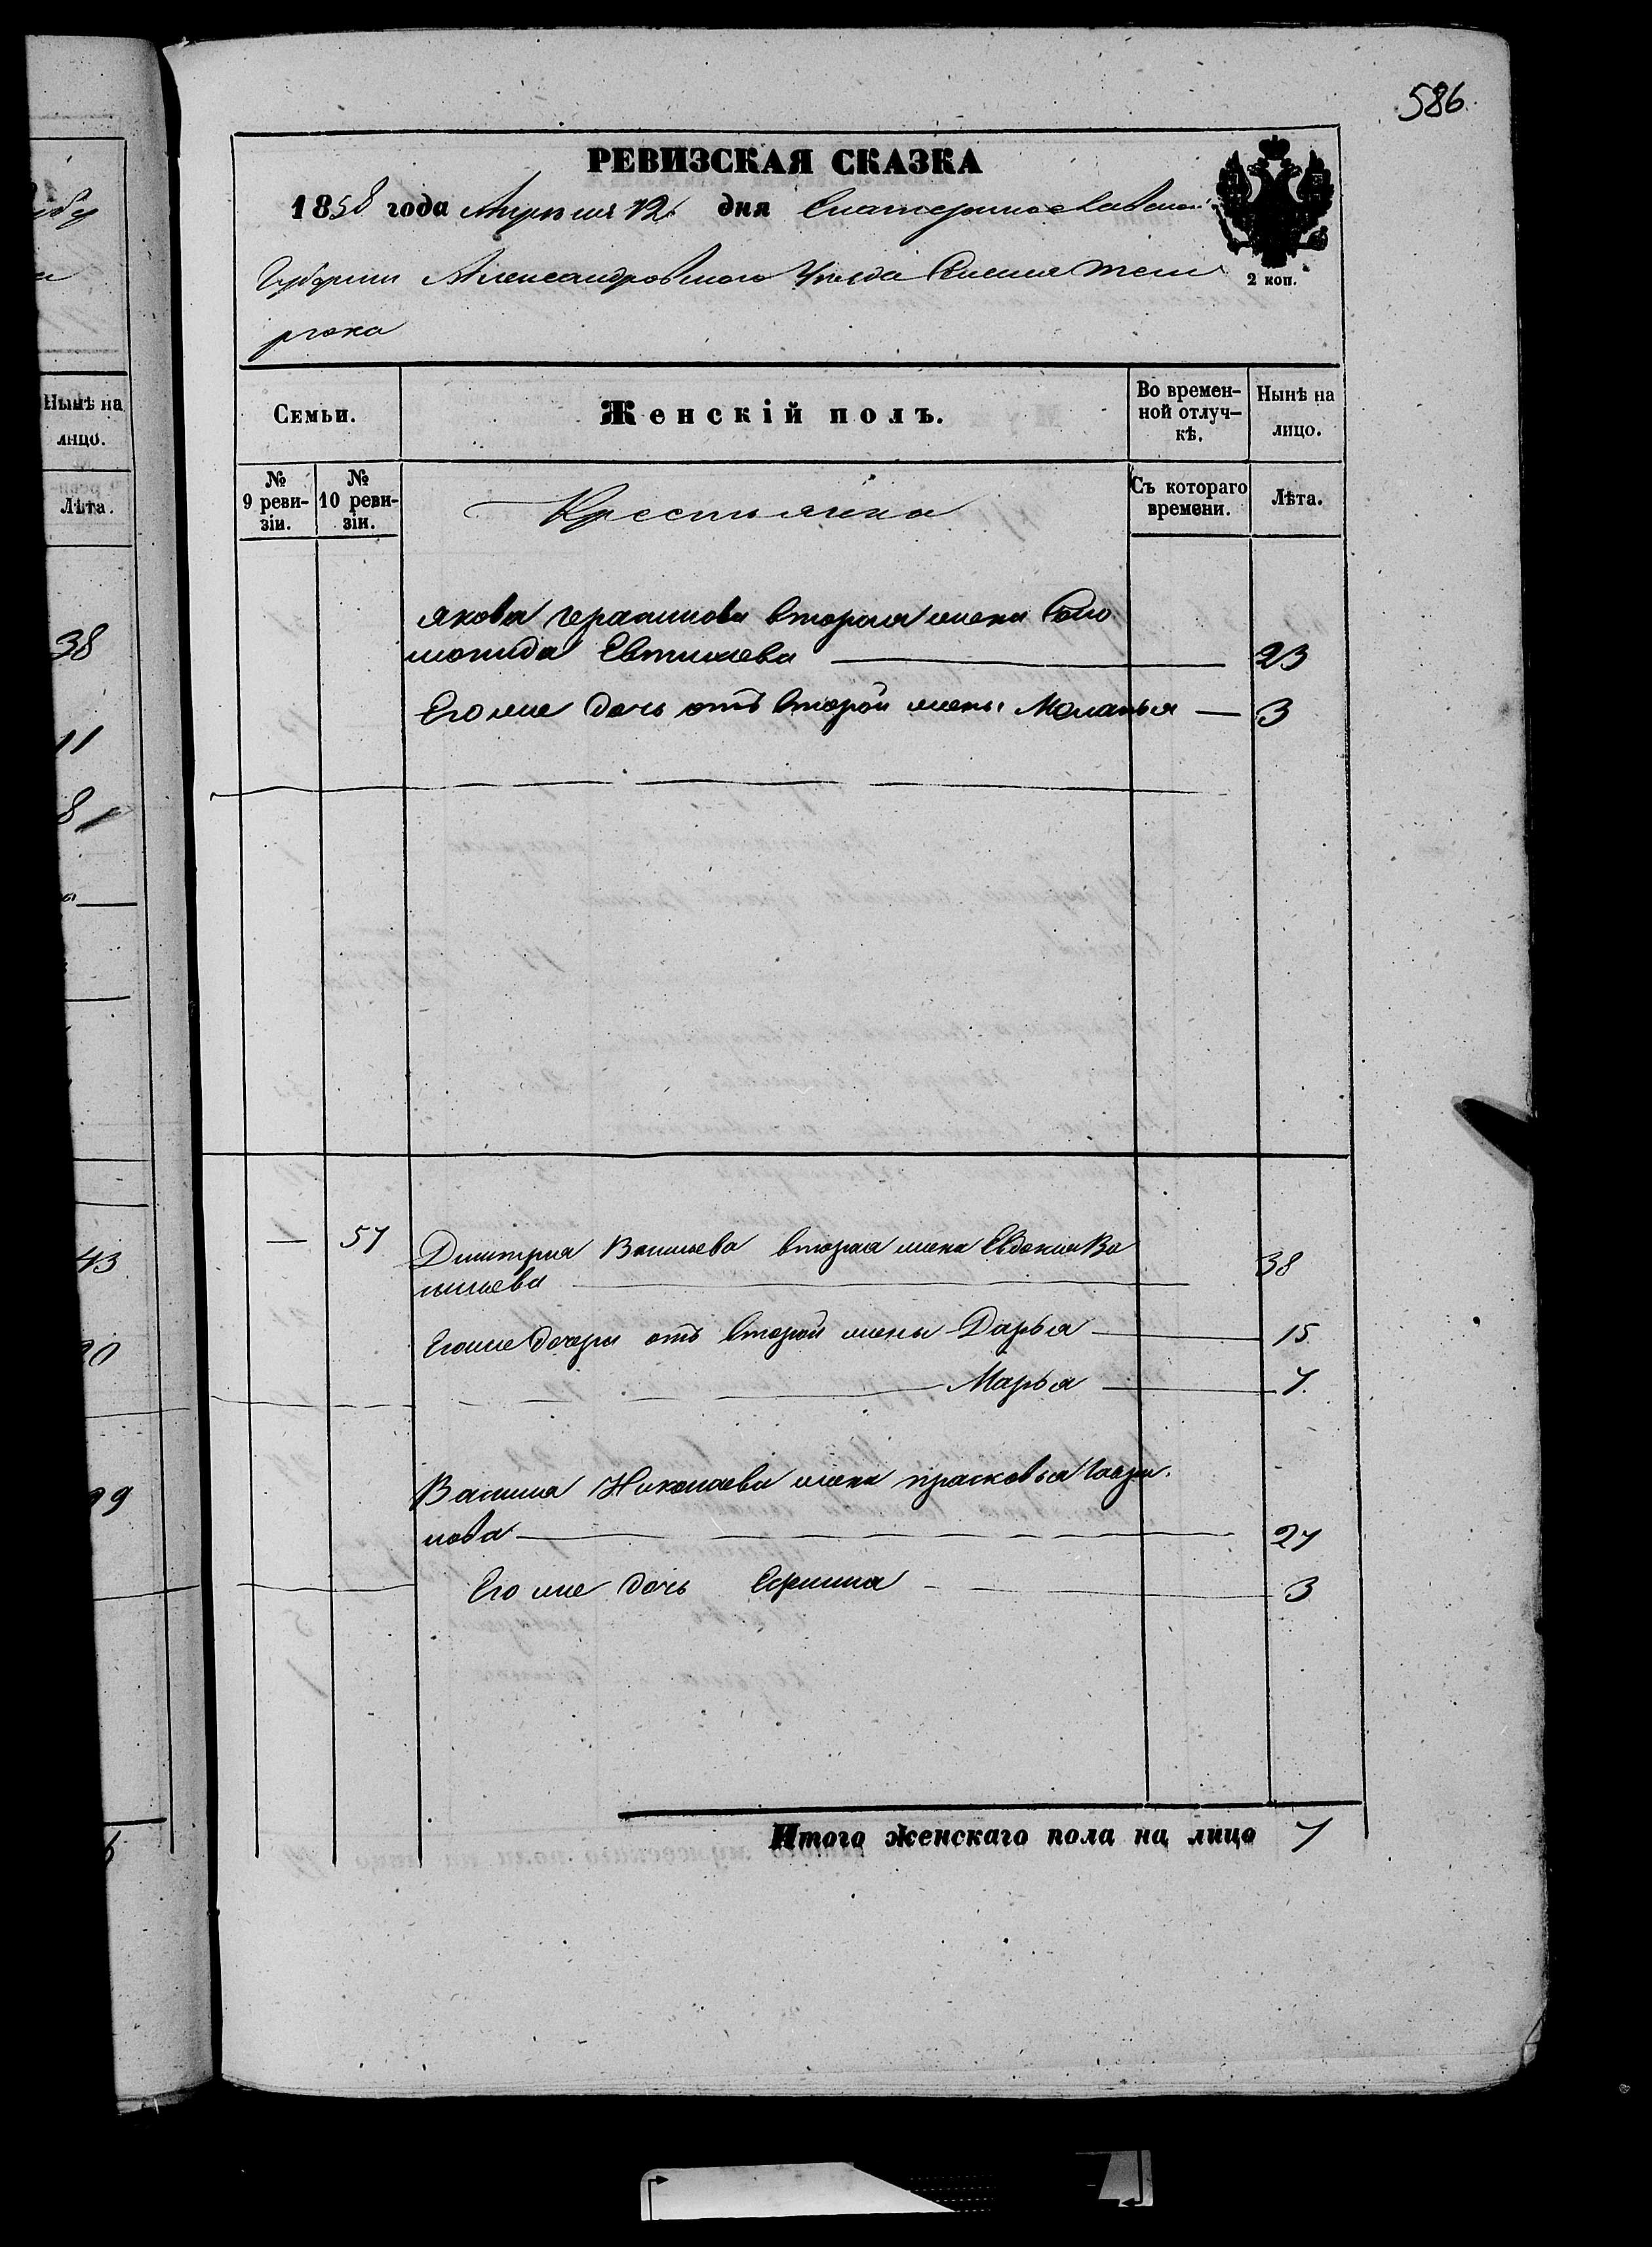 586.
РЕВИЗСКАЯ СКАЗКА
1858 года Апреля 12 дня Екатеринославской
Губернии Александровского Уезда Селения Тем
рюка
2 коп.
Семьи.
Женскій полъ.
Во времен-
ной отлуч-
кѣ.
Нынѣ на
лицо.
№
9 реви-
зіи.
№
10 реви-
зіи.
Съ котораго
времени.
Лѣта.
Крестьянка
Якова Герасимова вторая жена Соло
монида Евтихиева 23
Его же дочь отъ второй жены Меланья 3
57 Дмитрия Васильева вторая жена Евдокия Ва
сильева 38
Его же дочери отъ второй жены Дарья 15
Марья 7.
Василия Николаева жена прасковья Гаври
лова 27
Его же дочь 3
Итого женскаго пола на лицо 7
Нынѣ на
лицо.
Лѣта.
38
11
8
43
20